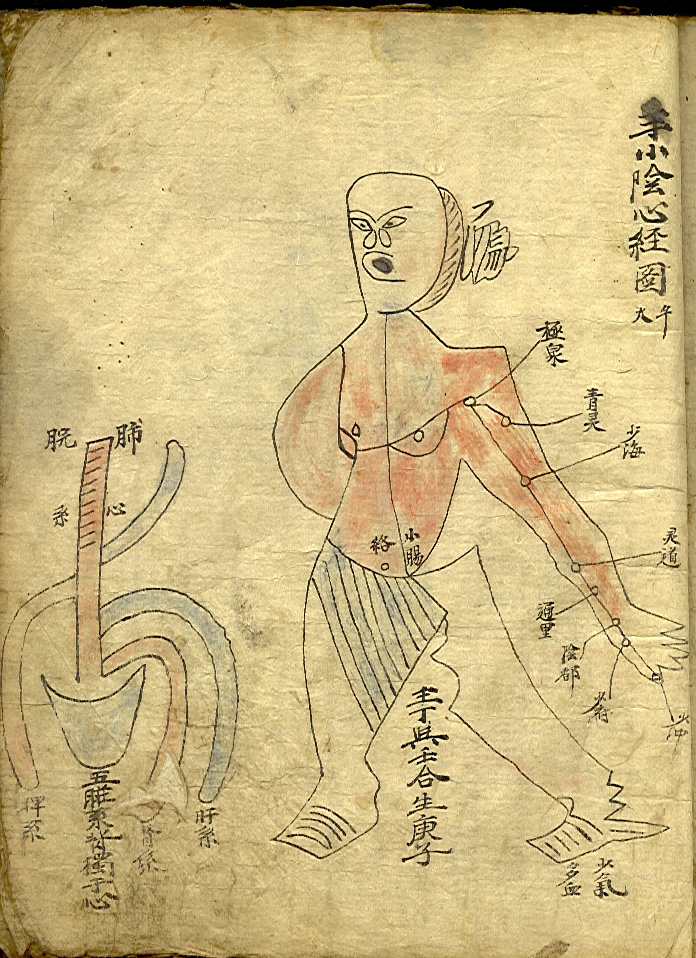 手小陰心経圖
午
九
極泉
青灵
少海
灵道
通里
陰都
少府
少冲
絡
小腸
丁與壬合生庚子
少氣
多血
肺
脘
心
系
肝系
腎係
脾系
五臟系皆獨于心